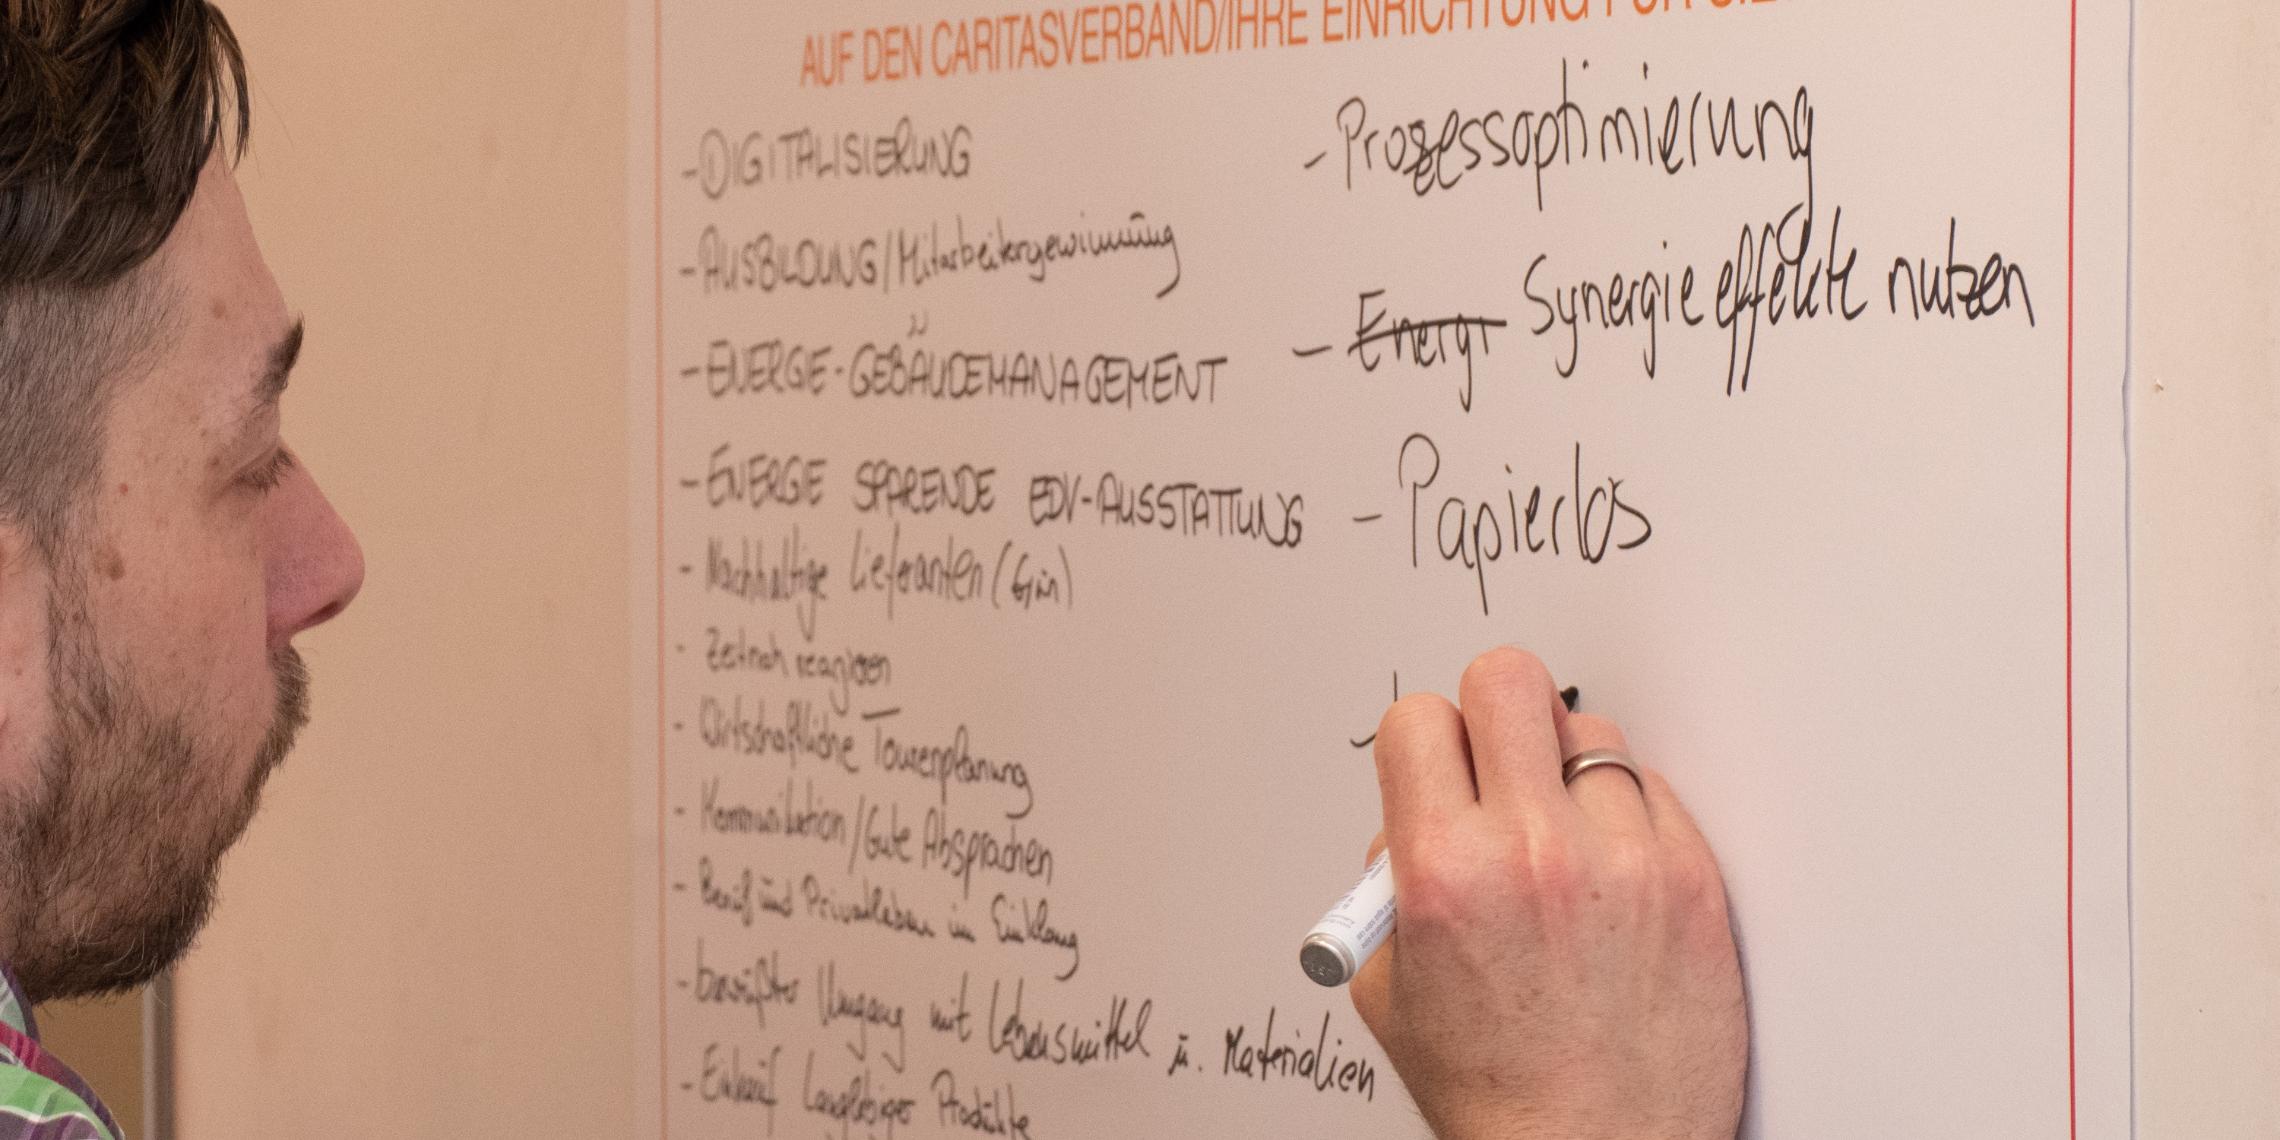 AUF DEN CARITASVERBAND/IHRE EINRICHTUNG FÜR
- DIGITALISIERUNG
- AUSBILDUNG/Mitarbeitergewinnung
- ENERGIE-GEBÄUDEMANAGEMENT
- ENERGIE SPARENDE EDV-AUSSTATTUNG
- Nachhaltige Lieferanten (Grün)
- Zeitnah reagieren
- Wirtschaftliche Tourenplanung
- Kommunikation/Gute Absprachen
- Beruf und Privatleben im Einklang
- bewußter Umgang mit Lebensmittel u. Materialien
- Einkauf langlebiger Produkte
- Prozessoptimierung
- Energi Synergieeffekte nutzen
- Papierlos
-